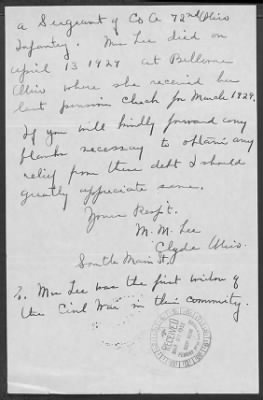 a Sergeant of Co A 72nd Ohio
Infantry. Mrs Lee died on
April 13 1929 at Bellevue
Ohio where she received her
last pension check for March 1929.
If you will kindly forward any
blanks necessary to obtain any
relief from these debt I should
greatly appreciate same.
Yours Resp't.
M. M. Lee
Clyde Ohio.
South Main St.
P. Mrs Lee was the first widow of
the Civil War in this community.
RECEIVED